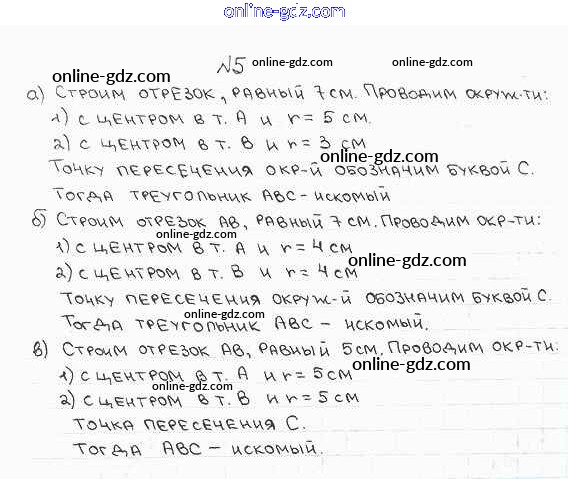 online-gdz.com
№5 online-gdz.com online-gdz.com
online-gdz.com
а) Строим отрезок, равный 7 см. Проводим окруж-ти:
1) с центром в т. А и r = 5 см.
online-gdz.com
2) с центром в т. В и r = 3 см
online-gdz.com
Точку пересечения окр-й обозначим буквой С.
Тогда треугольник АВС - искомый
online-gdz.com
б) Строим отрезок АВ, равный 7 см. Проводим окр-ти:
online-gdz.com
1) с центром в т. А и r = 4 см
online-gdz.com
2) с центром в т. В и r = 4 см
Точку пересечения окруж-й обозначим буквой С.
online-gdz.com
Тогда треугольник АВС - искомый.
online-gdz.com
в) Строим отрезок АВ, равный 5 см. Проводим окр-ти:
online-gdz.com
1) с центром в т. А и r = 5 см
online-gdz.com
2) с центром в т. В и r = 5 см
online-gdz.com
Точка пересечения С.
Тогда АВС - искомый.
online-gdz.com